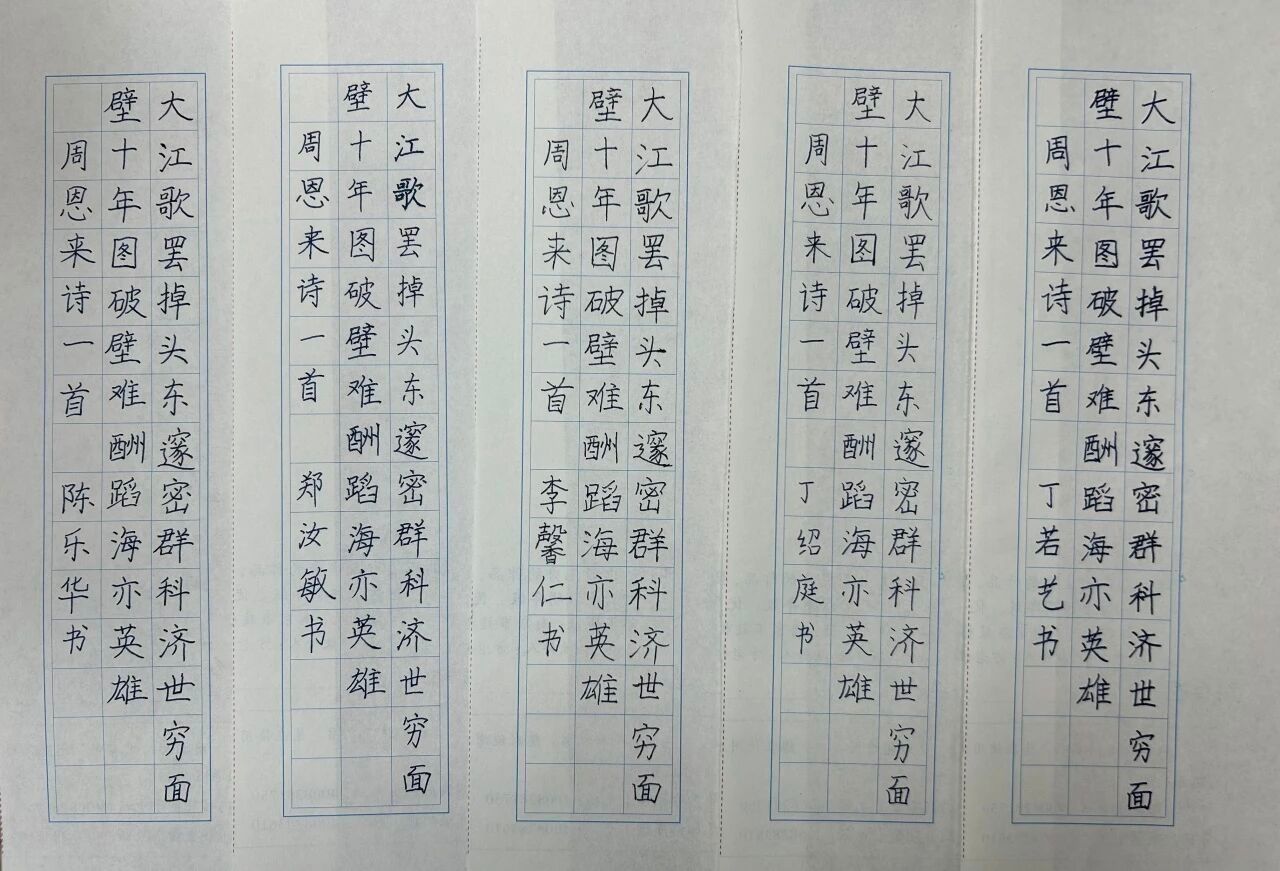 大江歌罢掉头东邃密群科济世穷面
壁十年图破壁难酬蹈海亦英雄
周恩来诗一首 丁若艺书
大江歌罢掉头东邃密群科济世穷面
壁十年图破壁难酬蹈海亦英雄
周恩来诗一首 丁绍庭书
大江歌罢掉头东邃密群科济世穷面
壁十年图破壁难酬蹈海亦英雄
周恩来诗一首 李馨仁书
大江歌罢掉头东邃密群科济世穷面
壁十年图破壁难酬蹈海亦英雄
周恩来诗一首 郑汝敏书
大江歌罢掉头东邃密群科济世穷面
壁十年图破壁难酬蹈海亦英雄
周恩来诗一首 陈乐华书